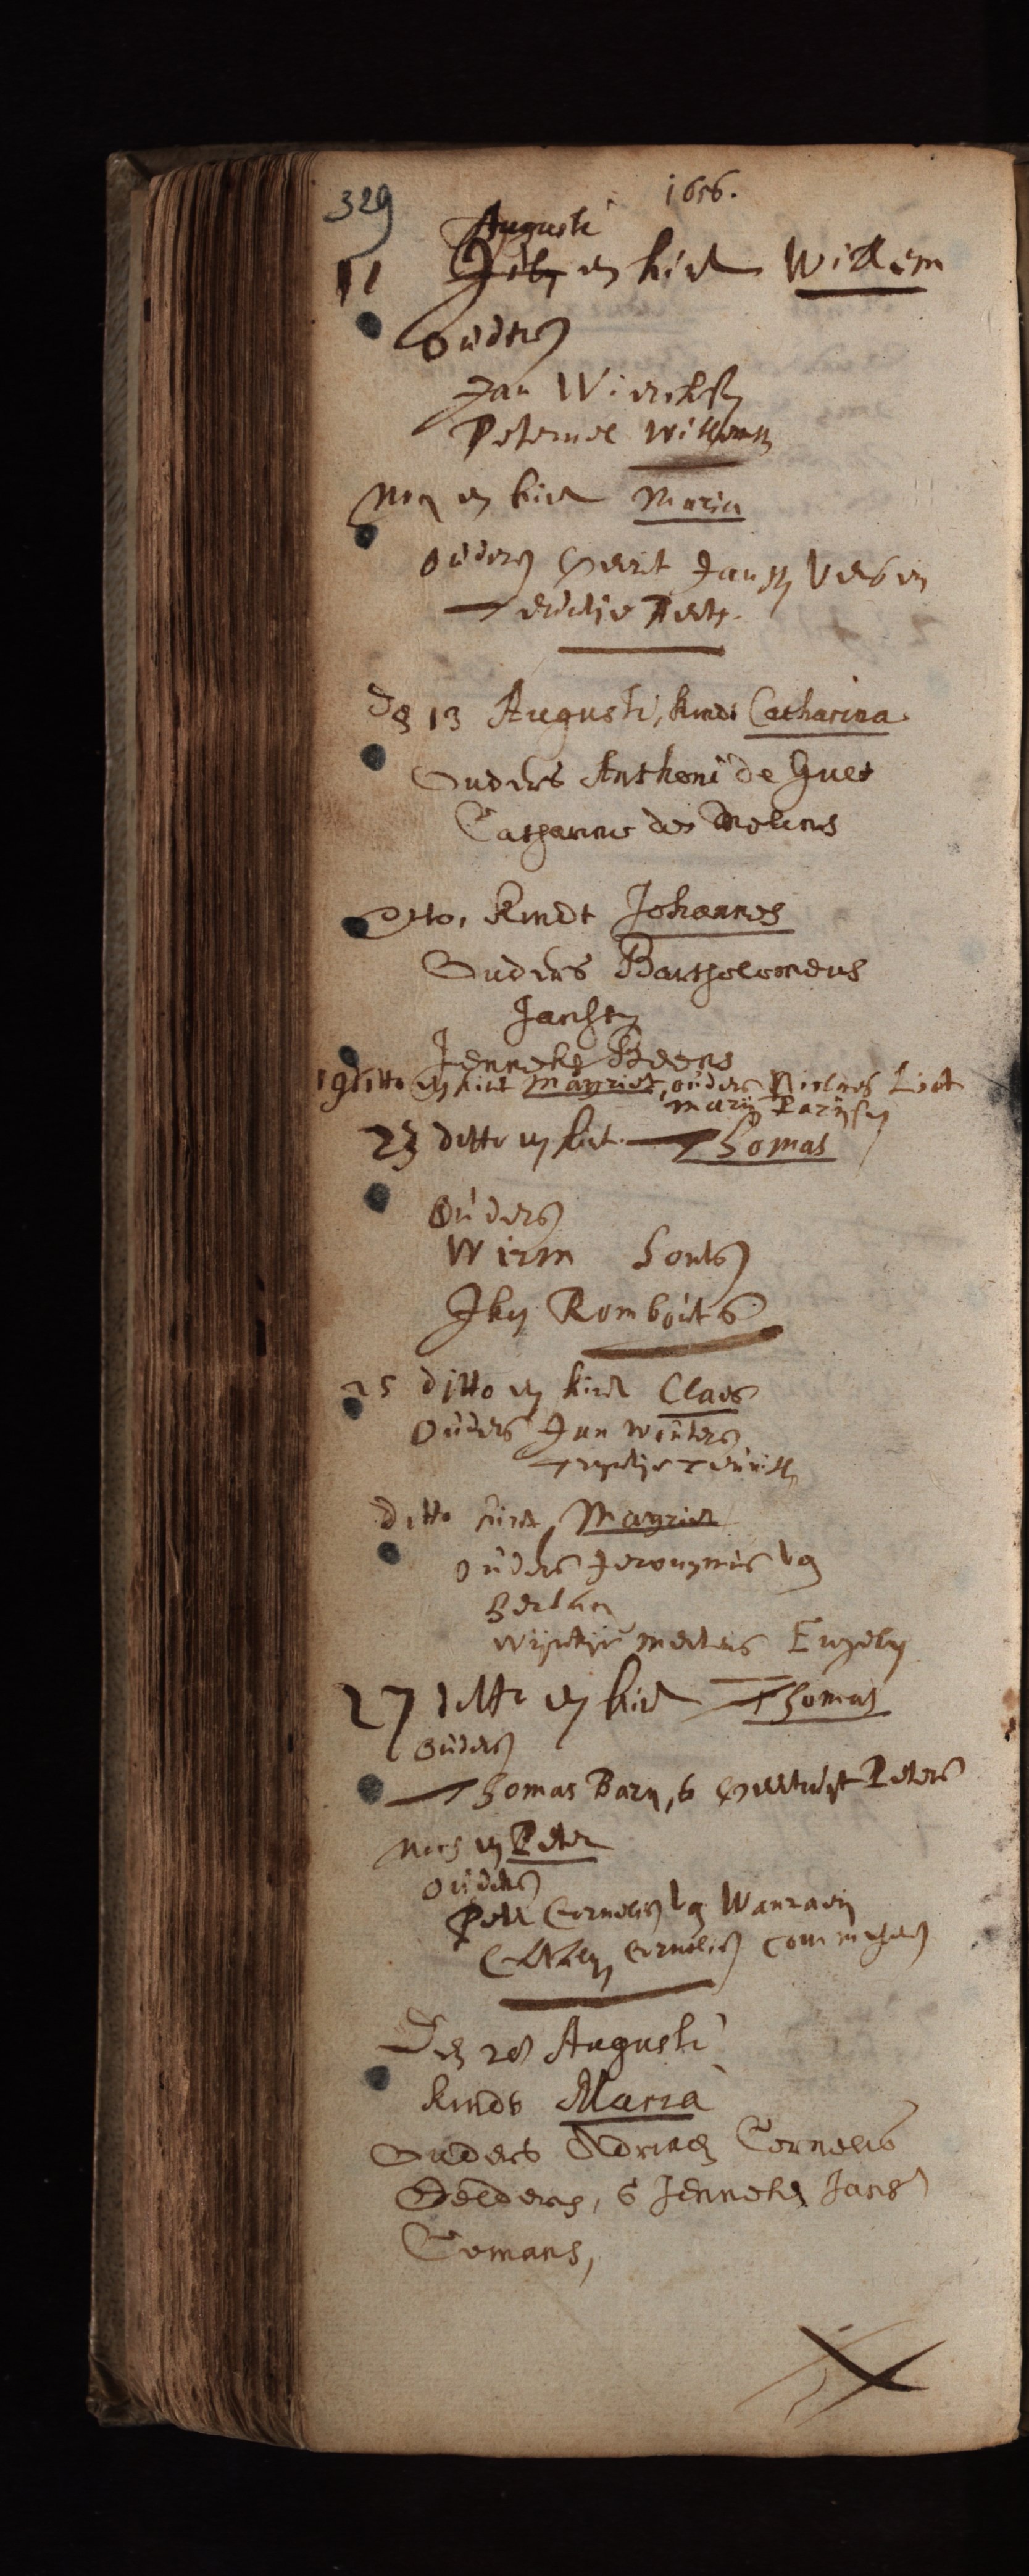 329
1656.
Augusti
11 Julij en kint Willem
Ouders
Jan Wierichsz
Peternel Willems
Noch en kint Maria
Ouders Gerit Jansz
den 13 Augusti, kindt Catharina
Ouders Anthoni de Huet
Catharina des Melins
Ditto, kindt Johannes
Ouders Bartholomeus
Jansen
Jenneke Beens
19 ditto en kint Magriet, ouders Niclaes
marij
23 ditto en kint Thomas
Ouders
Wirm Sonts
Jken Rombouts
25 ditto en kint Claes
Ouders Jan Winters
ditto kint Magriet
ouders Jeronymus van
Berlau
mertens Engelen
27 ditto en kint Thomas
Ouders
Thomas Barn, & Peters
Noch en Peter
ouders
Peter Cornelis van Wanraeij
Cornelis
Den 28 Augusti
kindt Maria
Ouders Adriaen Cornelis
Gelders, & Jenneken Jans
Comans,